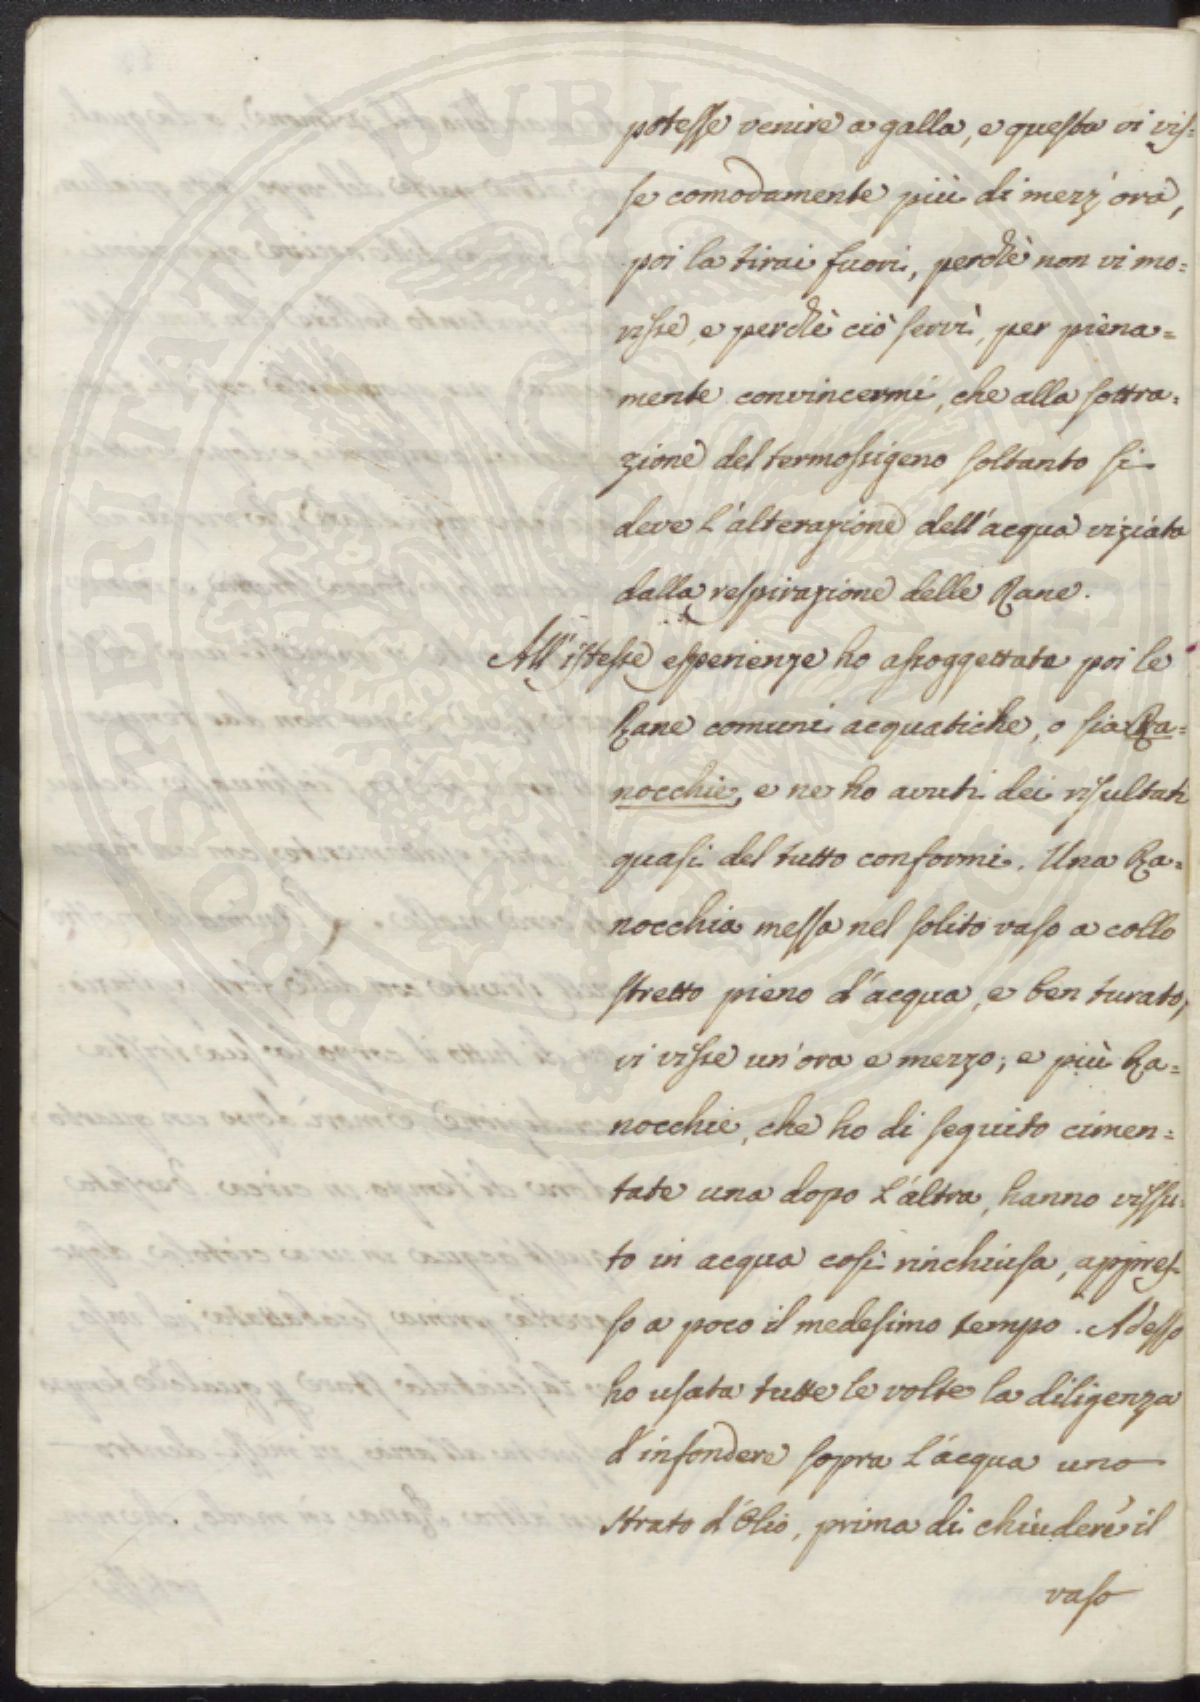 potesse venire a galla, e questa vi vis=
se comodamente più di mezz'ora,
poi la tirai fuori, perchè non vi mo=
risse, e perchè ciò servì, per piena=
mente convincermi, che alla sottra=
zione del termossigeno soltanto si
deve l'alterazione dell'acqua viziata
dalla respirazione delle Rane.
All'istesse esperienze ho assoggettate poi le
Rane comuni acquatiche, o sia Ra=
nocchie, e ne ho avuti dei risultati
quasi del tutto conformi. Una Ra=
nocchia messa nel solito vaso a collo
stretto pieno d'acqua, e ben turato,
vi visse un'ora e mezzo; e più Ra=
nocchie, che ho di seguito cimen=
tate una dopo l'altra, hanno vissu=
to in acqua così rinchiusa, appres=
so a poco il medesimo tempo. Adesso
ho usata tutte le volte la diligenza
d'infondere sopra l'acqua uno
strato d'Olio, prima di chiudere il
vaso
PROSPERITATI PUBLICAE